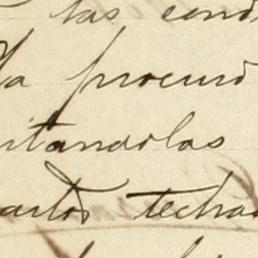 las cond
la procuro
itandolas
cuartos techa